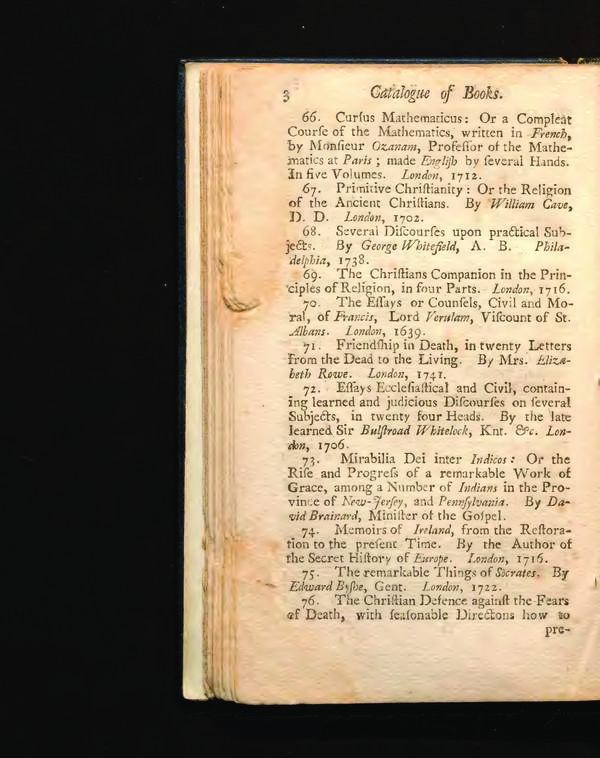 3 Catalogue of Books.
66. Curſus Mathematicus: Or a Compleat
Courſe of the Mathematics, written in French,
by Monſieur Ozanam, Profeſſor of the Mathe-
matics at Paris; made Engliſh by ſeveral Hands.
In five Volumes. London, 1712.
67. Primitive Chriſtianity: Or the Religion
of the Ancient Chriſtians. By William Cave,
D. D. London, 1702.
68. Several Diſcourſes upon practical Sub-
jects. By George Whitefield, A. B. Phila-
delphia, 1738.
69. The Chriſtians Companion in the Prin-
ciples of Religion, in four Parts. London, 1716.
70. The Eſſays or Counſels, Civil and Mo-
ral, of Francis, Lord Verulam, Viſcount of St.
Albans. London, 1639.
71. Friendſhip in Death, in twenty Letters
from the Dead to the Living. By Mrs. Eliza-
beth Rowe. London, 1741.
72. Eſſays Eccleſiaſtical and Civil, contain-
ing learned and judicious Diſcourſes on ſeveral
Subjects, in twenty four Heads. By the late
learned Sir Bulſtroad Whitelock, Knt. &c. Lon-
don, 1706.
73. Mirabilia Dei inter Indicos: Or the
Riſe and Progreſs of a remarkable Work of
Grace, among a Number of Indians in the Pro-
vince of New-Jerſey, and Pennſylvania. By Da-
vid Brainard, Miniſter of the Goſpel.
74. Memoirs of Ireland, from the Reſtora-
tion to the preſent Time. By the Author of
the Secret Hiſtory of Europe. London, 1716.
75. The remarkable Things of Socrates. By
Edward Byſhe, Gent. London, 1722.
76. The Chriſtian Defence againſt the Fears
of Death, with ſeaſonable Directons how to
pre-